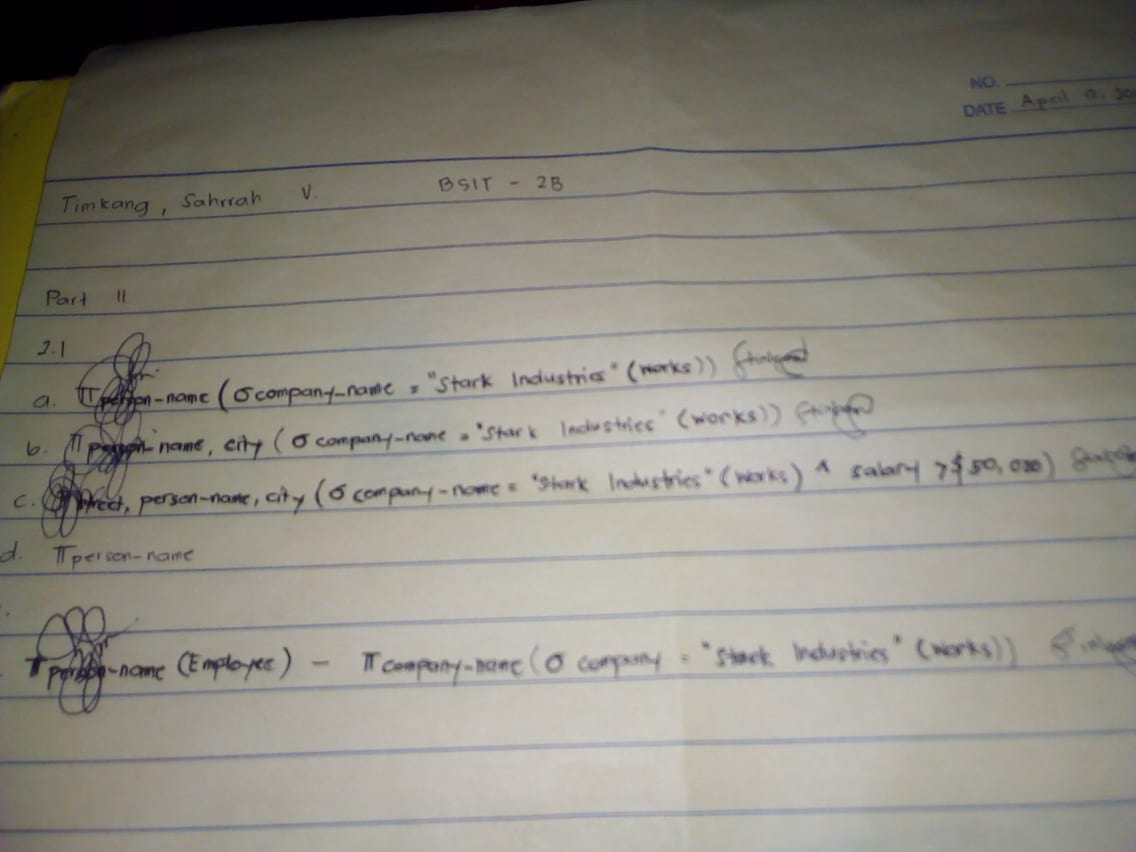 NO.
DATE April
Timkang, Sahrrah V. BSIT - 2B
Part II
2.1
a. π person-name (σ company-name = "Stark Industries" (works))
b. π person-name, city (σ company-name = "Stark Industries" (works))
c. street, person-name, city (σ company-name = "Stark Industries" (works) ^ salary >$50,000)
d. π person-name
π person-name (Employee) - π company-name (σ company = "Stark Industries" (works))